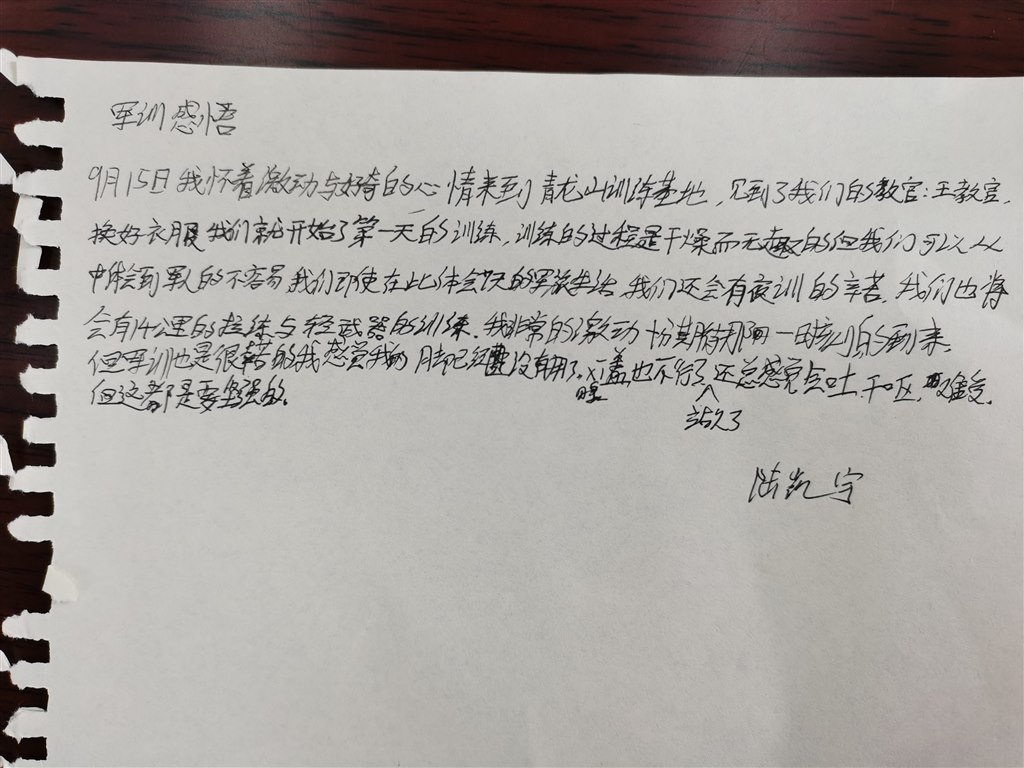 军训感悟
9月15日我怀着激动与好奇的心情来到青龙山训练基地,见到了我们的教官:王教官,
换好衣服我们就开始了第一天的训练,训练的过程是干燥而无趣的但我们可以从
中体会到军人的不容易,我们即使在此体会7天的军旅生活,我们还会有夜训的辛苦,我们也将
会有14公里的拉练与轻武器的训练.我非常的激动十分其期那一时刻的到来,
但军训也是很苦的我感觉我的脚已经没有用了,膝盖也不行了站久了还总感觉会吐,干呕,难受,
但这都是要坚强的。
陆凯宇